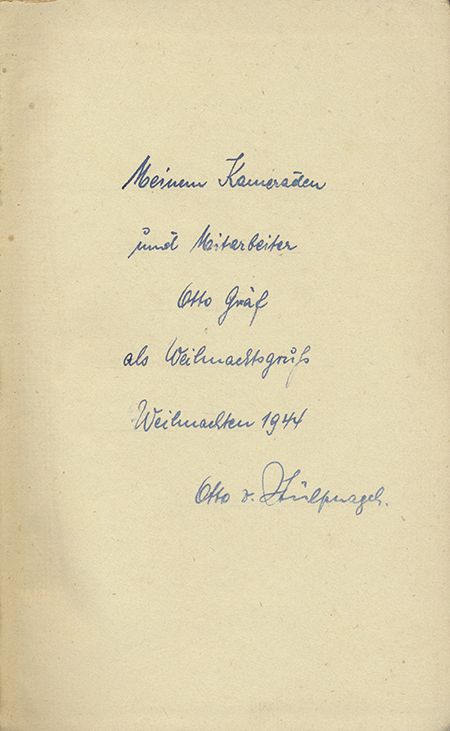 Meinem Kameraden
und Mitarbeiter
Otto Gräf
als Weihnachtsgruß
Weihnachten 1944
Otto v. Stülpnagel.